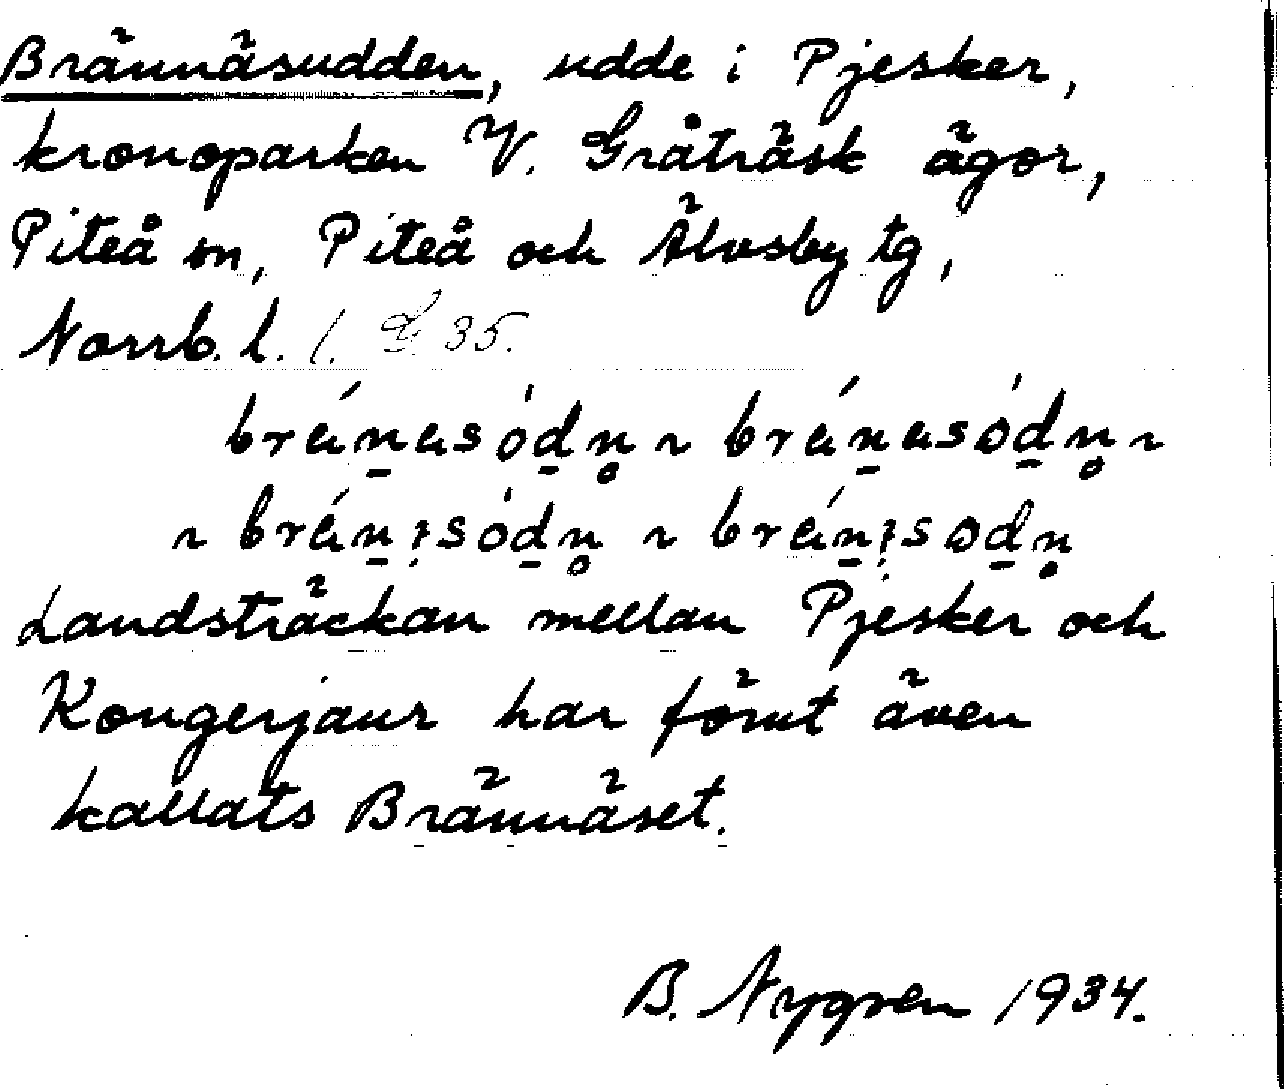 Brännäsudden, udde i Pjesker,
kronoparken V. Gråträsk ägor,
Piteå sn, Piteå och Älvsby tg,
Norrb. l. l. G. 35.
bránasódn̥ ~ bránasódn̥ ~
~ bránı̣sódn̥ ~ bránı̣sodn̥
Landsträckan mellan Pjesker och
Kongerjaur har förut även
kallats Brännäset.
B. Nygren 1934.